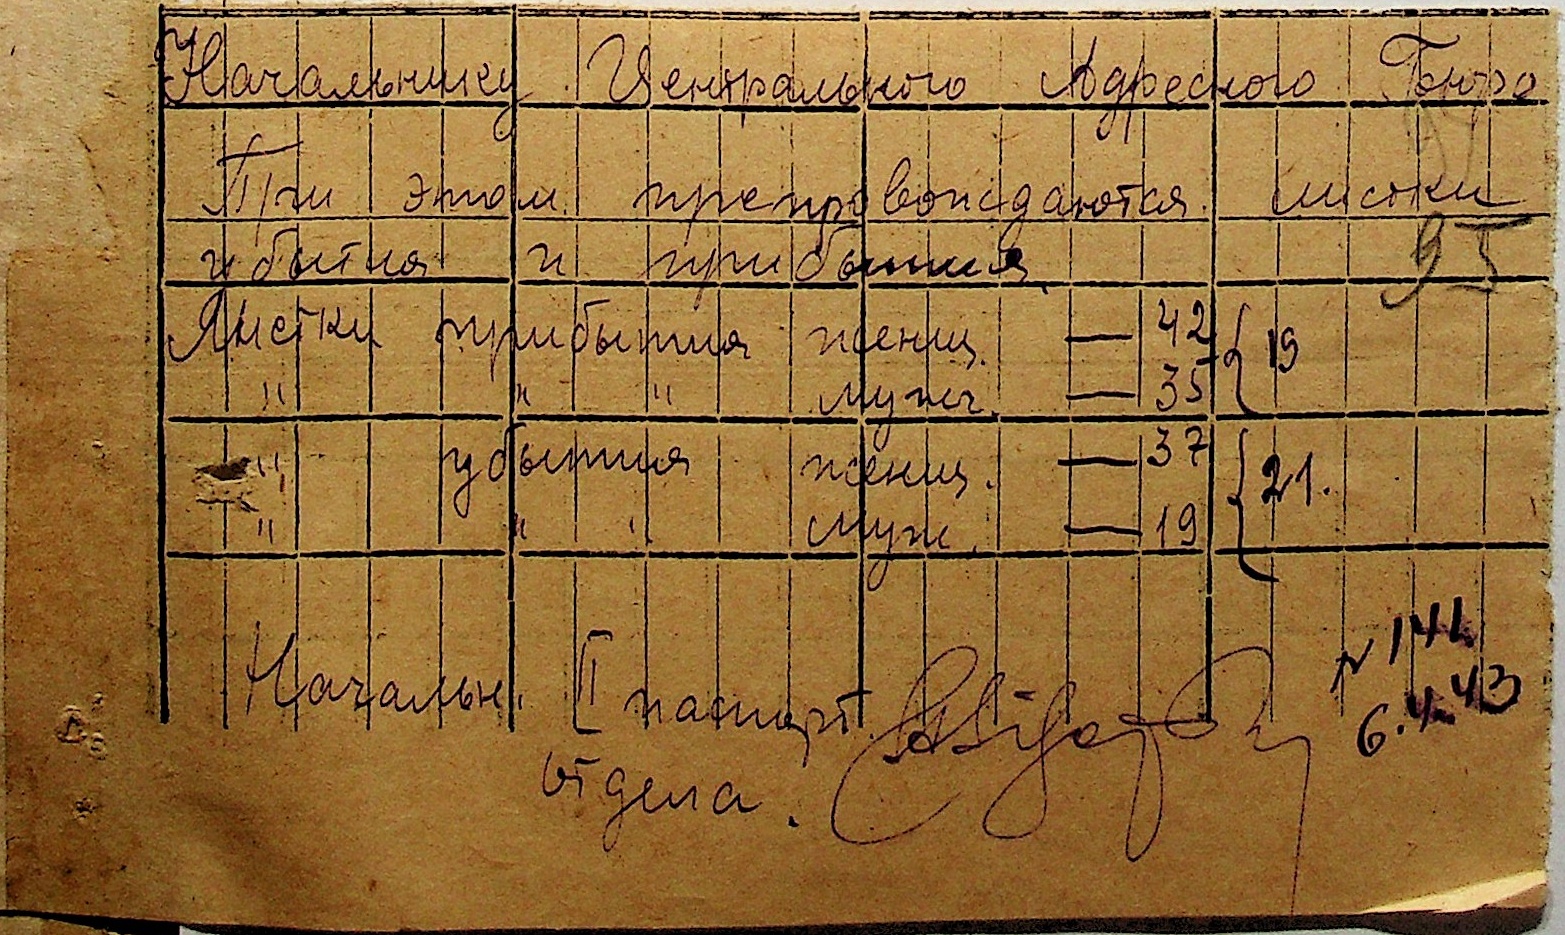 Начальнику Центрального Адресного Бюро
При этом препровождаются листки
95
убытия и прибытия
Листки прибытия женщ. — 42 { 19
" " " мужч. — 35
" убытия женщ. — 37 { 21.
" " " муж. — 19
N 144
6.4.43
Начальн. II паспорт.
отдела.